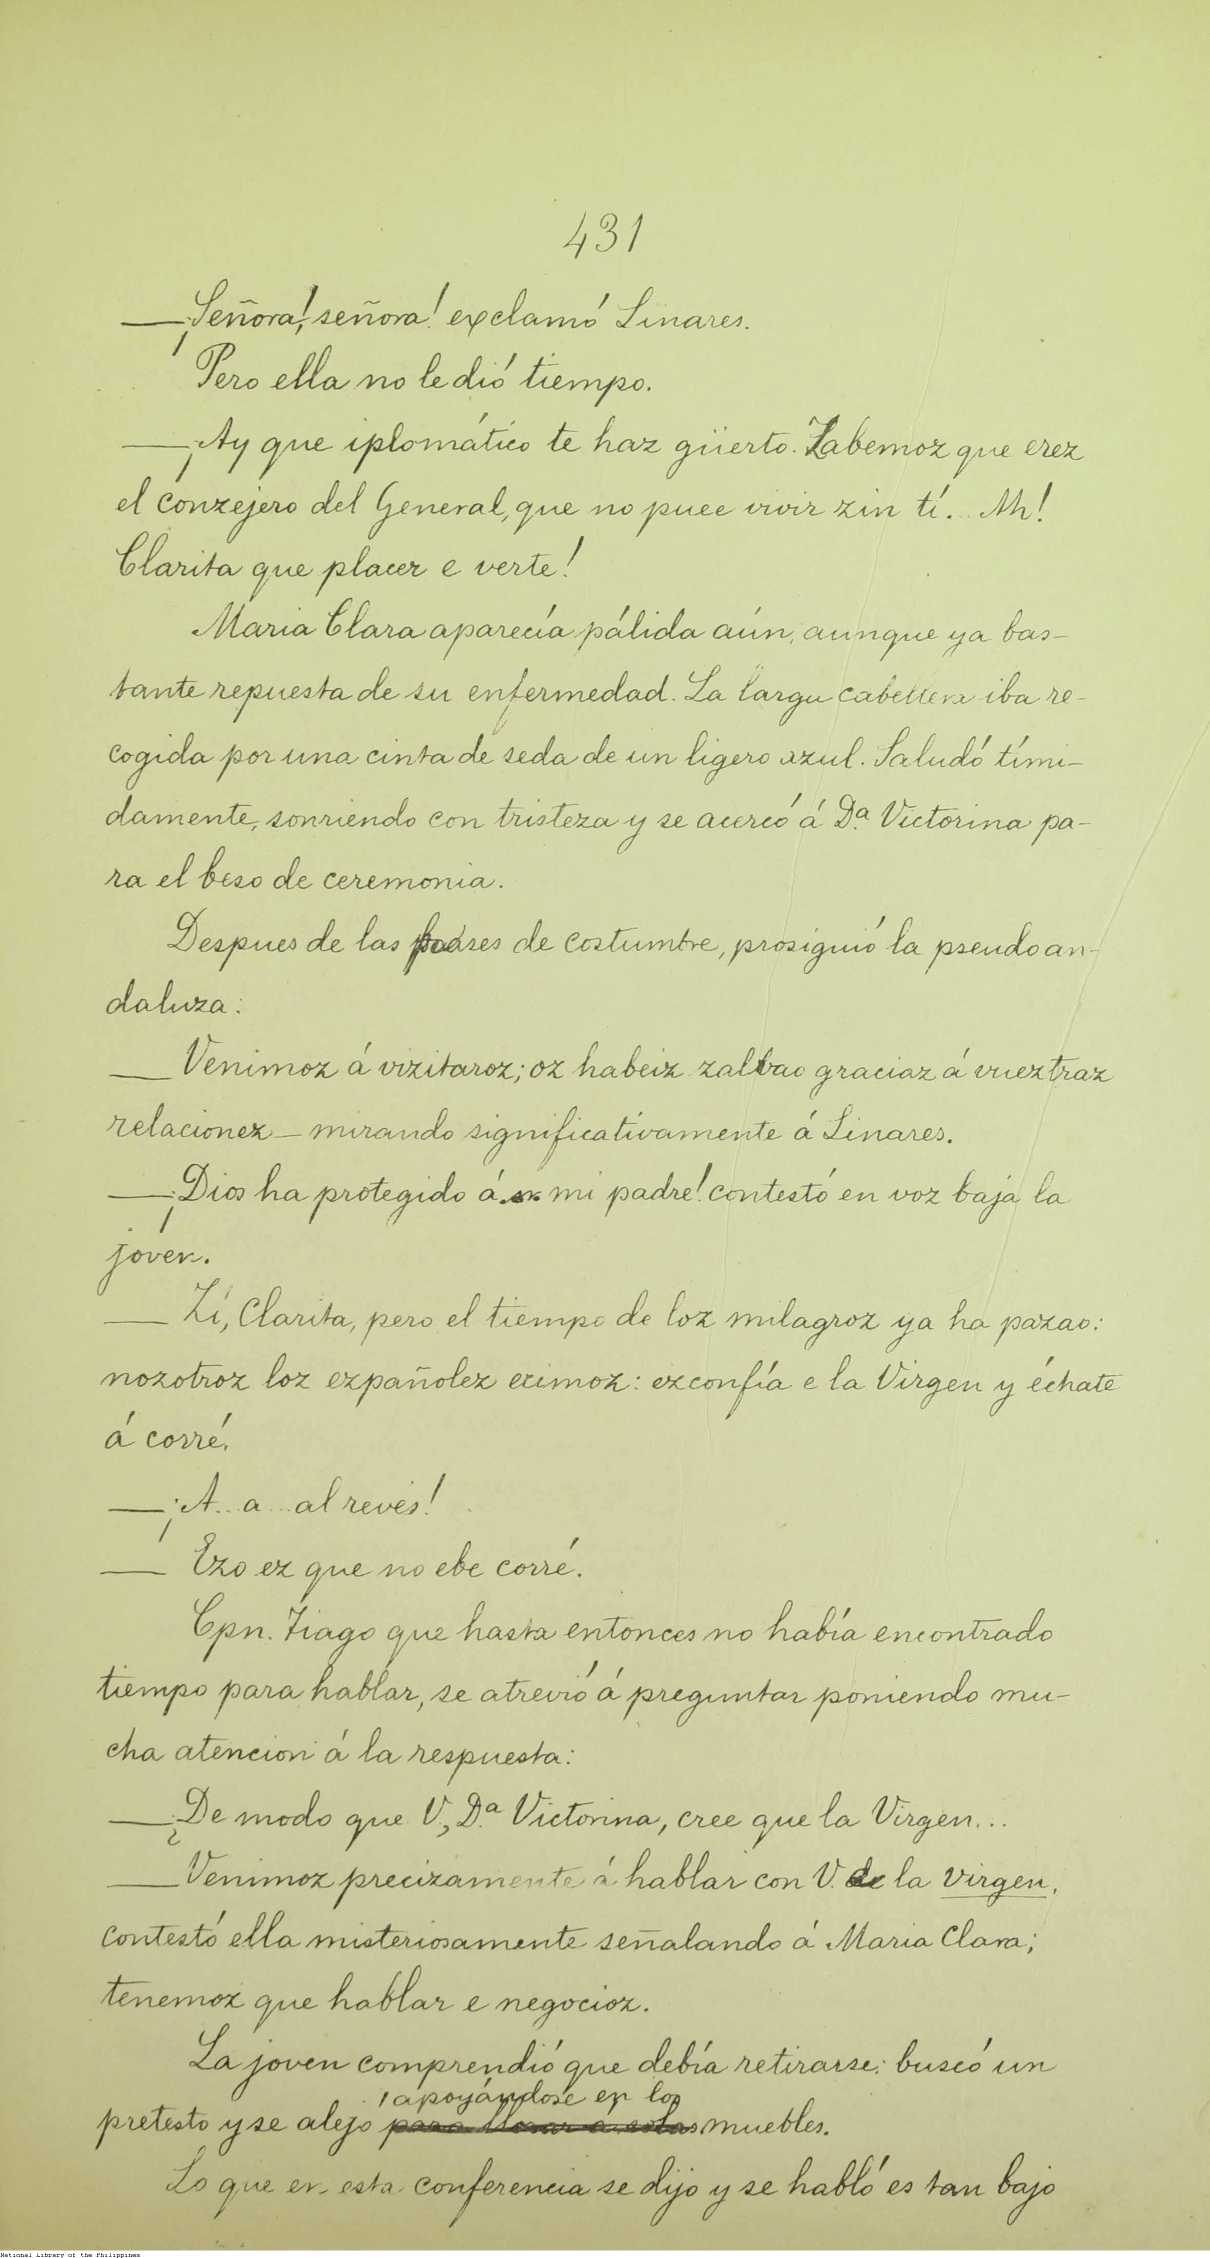 431
—¡Señora!, señora! exclamó Linares.
Pero ella no le dió tiempo.
—¡Ay que iplomático te haz güerto. Zabemoz que erez
el conzejero del General, que no puee vivir zin tí... Ah!
Clarita que placer e verte!
Maria Clara aparecía pálida aún, aunque ya bas-
tante repuesta de su enfermedad. La larga cabellera iba re-
cogida por una cinta de seda de un ligero azul. Saludó tími-
damente, sonriendo con tristeza y se acercó á Dª. Victorina pa-
ra el beso de ceremonia.
Despues de las frases de costumbre, prosiguió la pseudo an-
daluza:
— Venimoz á vizitaroz; oz habeiz zalbao graciaz á vueztraz
relacionez — mirando significativamente á Linares.
—¡Dios ha protegido á mi padre! contestó en voz baja la
jóven.
— Zí, Clarita, pero el tiempo de loz milagroz ya ha pazao:
nozotroz loz ezpañolez ecimoz: ezconfía e la Virgen y échate
á corré.
—¡A.. a... al revés!
— Ezo ez que no ebe corré.
Cpn. Tiago que hasta entonces no había encontrado
tiempo para hablar, se atrevió á preguntar poniendo mu-
cha atencion á la respuesta:
—¿De modo que V., Dª. Victorina, cree que la Virgen...
— Venimoz precizamente á hablar con V. de la virgen,
contestó ella misteriosamente señalando á Maria Clara;
tenemoz que hablar e negocioz.
La joven comprendió que debía retirarse: buscó un
apoyándose en los
pretesto y se alejo muebles.
Lo que en esta conferencia se dijo y se habló es tan bajo
National Library of the Philippines